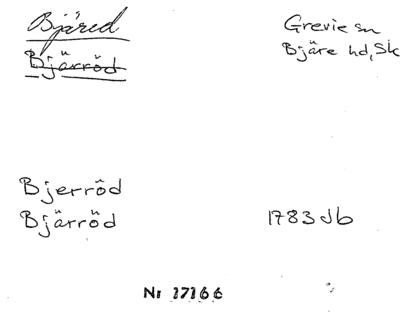 Bjäred
Bjärröd
Grevie sn
Bjäre hd, Sk
Bjerröd
Bjärröd 1783 db
Nr 17166